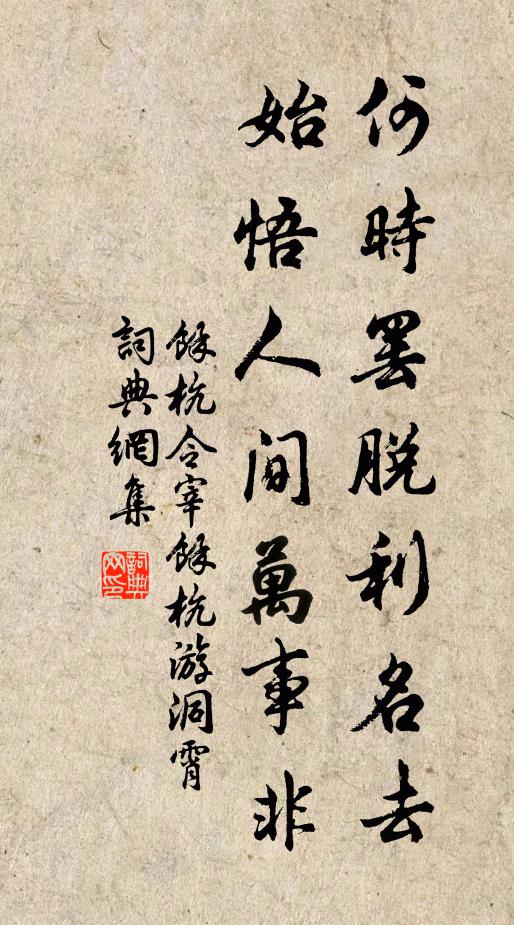 何時罷脫利名去
始悟人間萬事非
餘杭令宰餘杭游洞霄
詞典網集
詞典網印